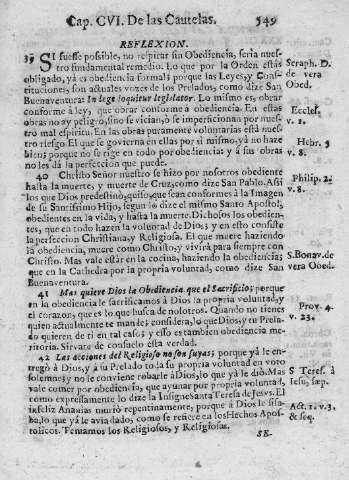 Cap. CVI. De las Cautelas. 549
REFLEXION.
39 SI fuesse possible, no respirar sin Obediencia, seria nues-
tro fundamental remedio. Lo que por la Orden estàs
obligado, yà es obediencia formal; porque las Leyes, y Cons-
tituciones, son actuales vozes de los Prelados, como dize San
Buenaventura: In lege loquitur legislator. Lo mismo es, obrar
conforme à ley, que obrar conforme à obediencia. En estas
obras no ay peligro, sino se vician, ò se imperficionan por nues-
tro mal espiritu. En las obras puramente voluntarias està nues-
tro riesgo. El que se govierna en ellas por sì mismo, yà no haze
bien; porque no se rige en todo por obediencia; y à sus obras
no les dà la perfeccion que puede.
40 Christo Señor nuestro se hizo por nosotros obediente
hasta la muerte, y muerte de Cruz, como dize San Pablo. Assi
los que Dios predestinò, quiso, que sean conformes à la Imagen
de su Santissimo Hijo, segun lo dize el mismo Santo Apostol,
obedientes en la vida, y hasta la muerte. Dichosos los obedien-
tes, que en todo hazen la voluntad de Dios; y en esto consiste
la perfeccion Christiana, y Religiosa. El que muere haziendo
la obediencia, muere como Christo, y vivirà para siempre con
Christo. Mas vale estàr en la cocina, haziendo la obediencia;
que en la Cathedra por la propria voluntad, como dize San
Buenaventura.
41 Mas quiere Dios la Obediencia, que el Sacrificio; porque
en la obediencia le sacrificamos à Dios la propria voluntad, y
el corazon, que es lo que busca de nosotros. Quando no tienes
quien actualmente te mande; considera, lo que Dios, y tu Prela-
do quieren de ti en tal caso; y esso es tambien obediencia me-
ritoria. Sirvate de consuelo esta verdad.
42 Las acciones del Religioso no son suyas; porque yà le en-
tregò à Dios, y à su Prelado toda su propria voluntad en voto
solemne; y no le conviene robarle à Dios, lo que yà le diò. Mas
vale comer por obediencia, que ayunar por propria voluntad,
como expressamente lo dize la Insigne Santa Teresa de Jesvs. El
infeliz Ananias muriò repentinamente, porque à Dios le sisa-
ba, lo que yà le avia dado, como se refiere en los Hechos Apos-
tolicos. Temamos los Religiosos, y Religiosas.
Seraph. D.
de vera
Obed.
Eccles.
v. 1.
Hebr. 5
v. 8.
Philip. 2.
v. 8.
S. Bonav. de
vera Obed.
Prov. 4.
v. 23.
S. Teres. à
Iesu, sæp.
Act. 1. v. 3.
& seq.